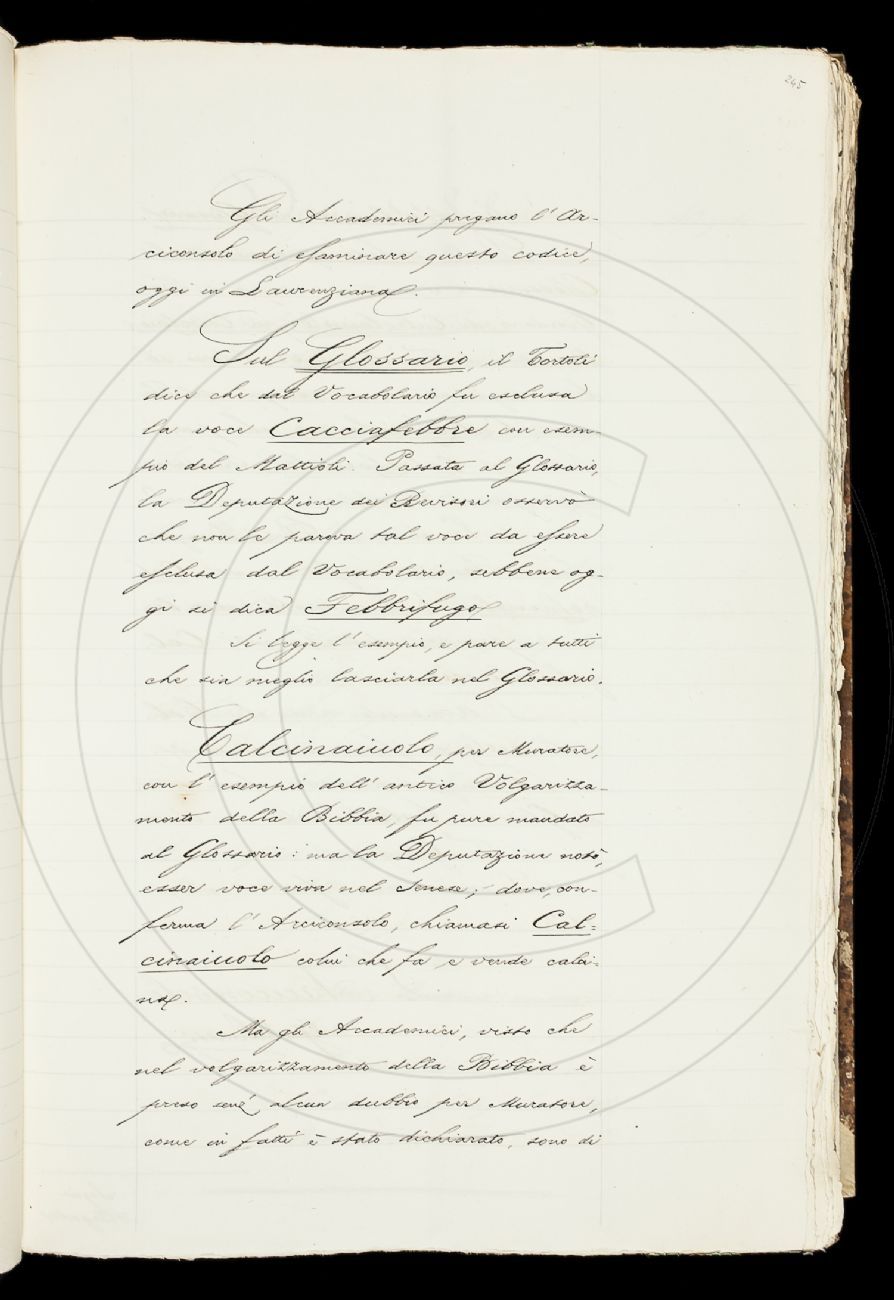 245
Gli Accademici pregano l' Ar-
ciconsolo di esaminare questo codice,
oggi in Laurenziana.
Sul Glossario, il Tortoli
dice che dal Vocabolario fu esclusa
la voce Cacciafebbre con esem-
pio del Mattioli. Passata al Glossario,
la Deputazione dei Revisori osservò
che non le pareva tal voce da essere
esclusa dal Vocabolario, sebbene og-
gi si dica Febbrifugo.
Si legge l' esempio, e pare a tutti
che sia meglio lasciarla nel Glossario.
Calcinaiuolo, per Muratore,
con l' esempio dell' antico Volgarizza-
mento della Bibbia, fu pure mandato
al Glossario: ma la Deputazione notò,
esser voce viva nel Senese; dove, con-
ferma l' Arciconsolo, chiamasi Cal-
cinaiuolo colui che fa e vende calci-
na.
Ma gli Accademici, visto che
nel volgarizzamento della Bibbia è
preso senz' alcun dubbio per Muratore,
come in fatti è stato dichiarato, sono di